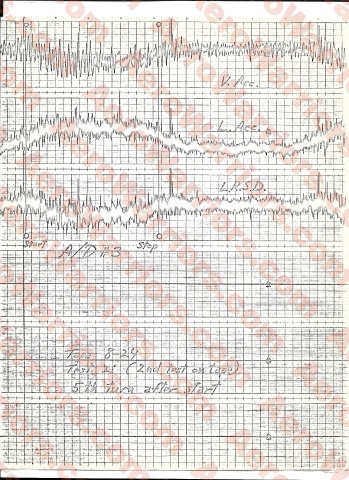 V. Acc.
L. Acc.
L.R.S.D.
start stop
A/D #3
Tape 8-24
Test 21 (2nd test on tape)
5th turn after start